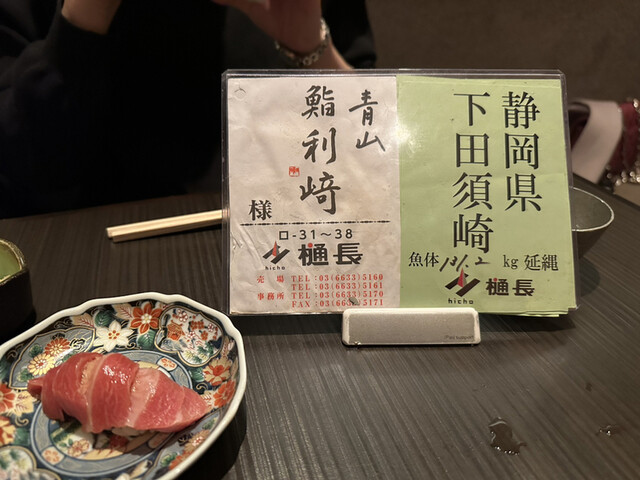 青山
鮨利﨑
様
ロ-31〜38
樋長
hicho
売場 TEL:03(6633)5160
TEL:03(6633)5161
事務所 TEL:03(6633)5170
FAX:03(6633)5171
静岡県
下田須崎
魚体 kg 延縄
樋長
hicho